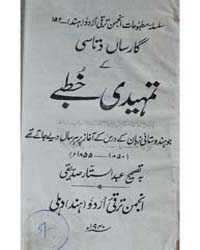 سلسلۂ مطبوعات انجمن ترقی اُردو (ہند) ۱۵۲
گارساں دتاسی
کے
تمہیدی خطبے
جو ہندوستانی زبان کے درس کے آغاز پر ہر سال دیے جاتے تھے
(۱۸۵۰ء — ۱۸۵۵ء)
بہ تصحیح عبدالستار صدیقی
انجمن ترقی اُردو (ہند) دہلی
۱۹۴۰ء